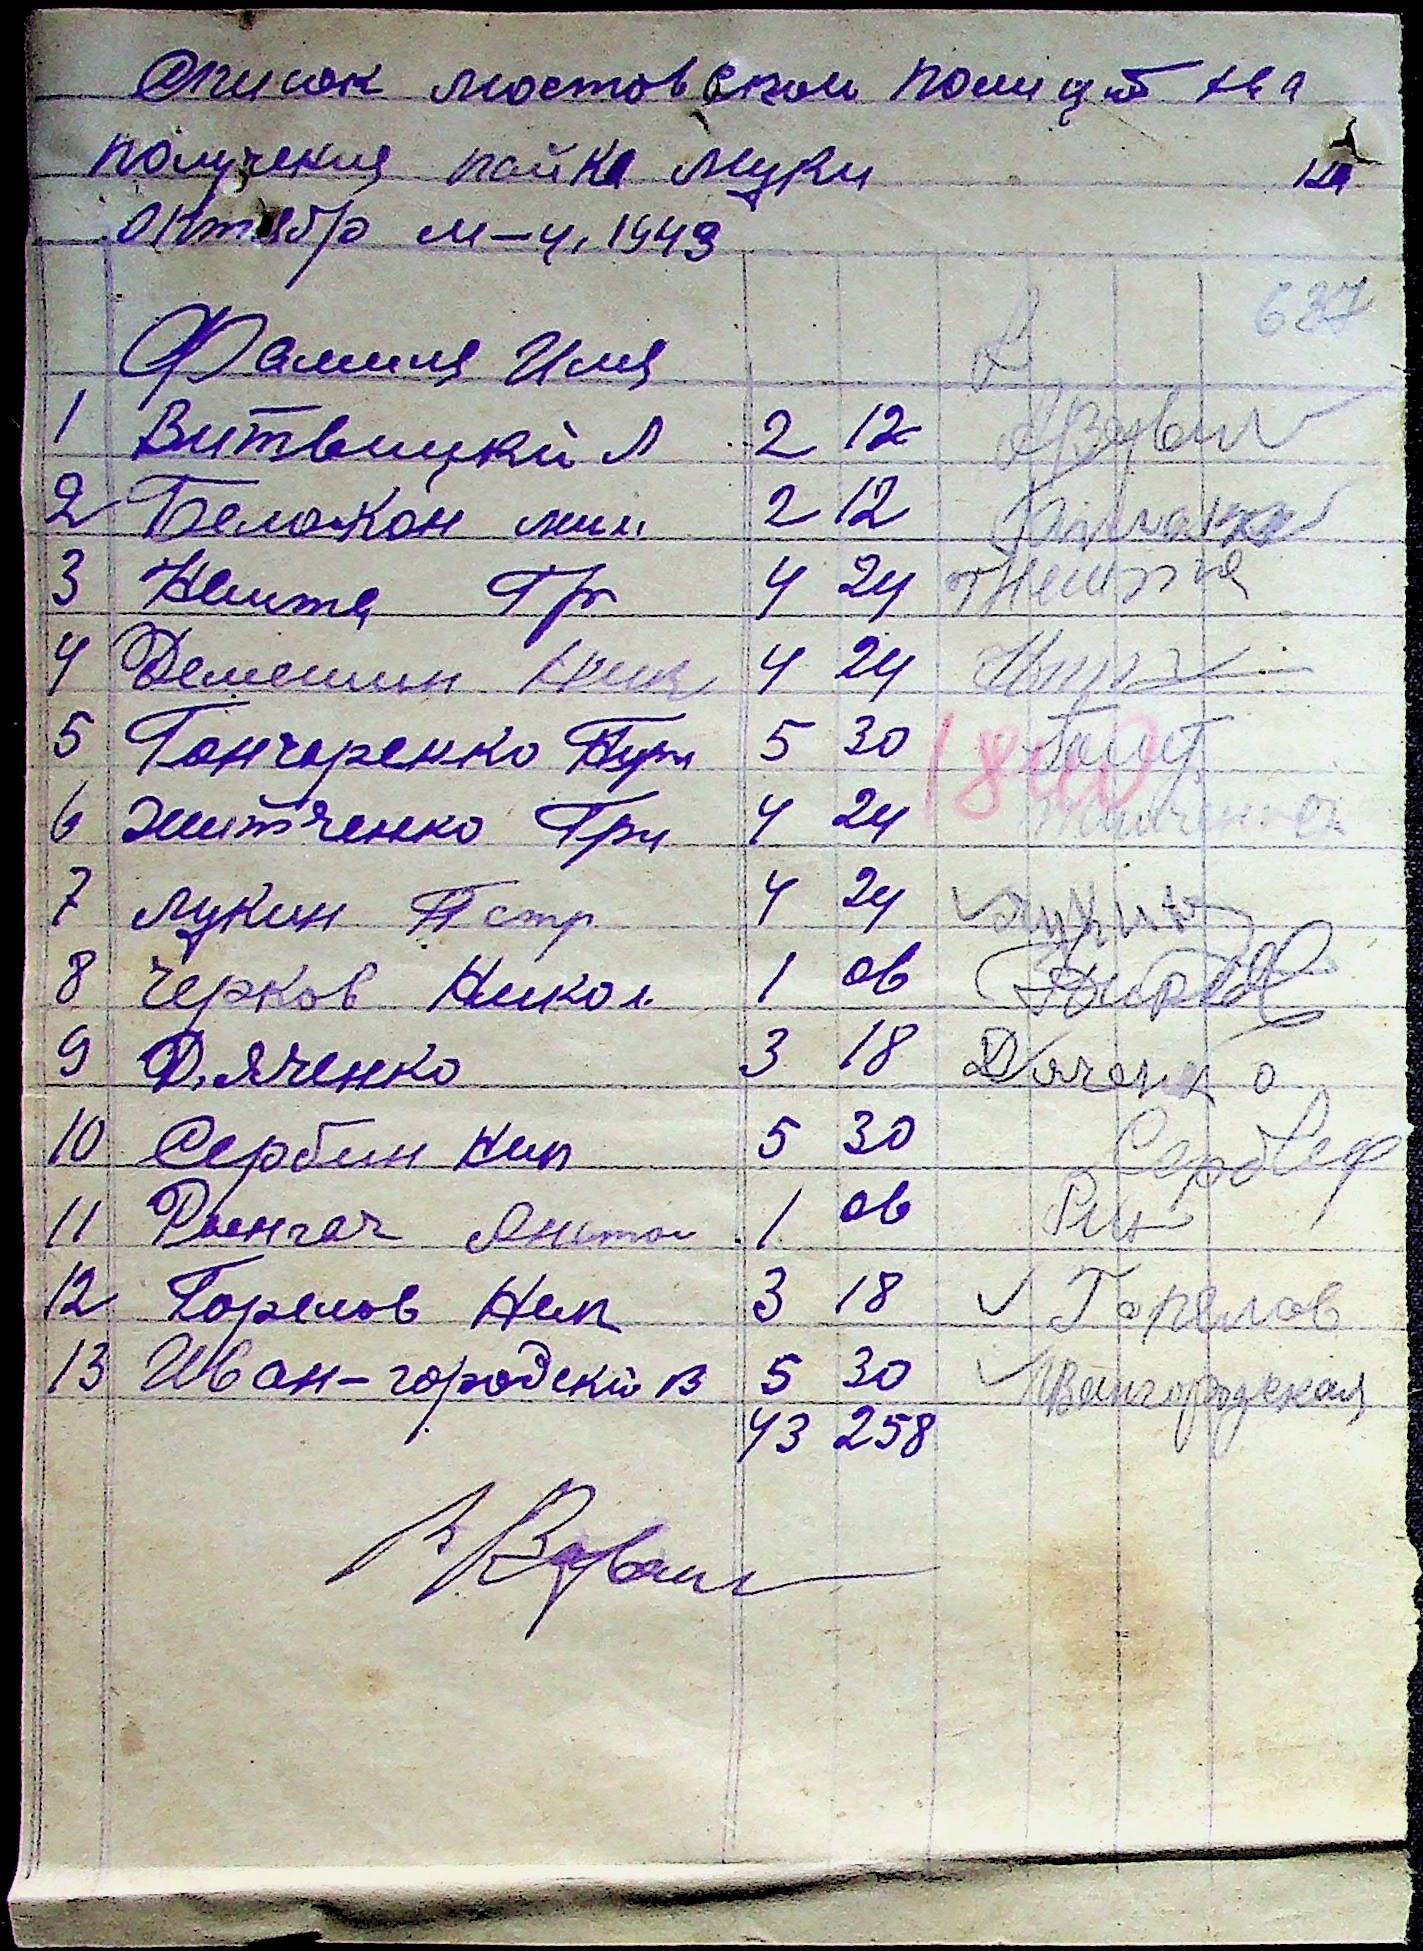 Список мостовской полиц на
получения пайка муки на
октябр м-ц, 1943
637
Фамиля Имя
1 Витвицкий Л 2 12
2 Белокон мих 2 12
3 Неита Гр 4 24
4 Демешин Ник 4 24
5 Гончаренко 5 30
1840
6 Житченко Гри 4 24
7 Лукин Петр 4 24 Лукин
8 Черков Никол 1 06
9 Дяченко 3 18 Дяченко
10 Сербин Ник 5 30 Серб
11 Рынгач Антон 1 06 Рин
12 Горелов Ник 3 18 Горелов
13 Иван-городский В 5 30 Ивангородская
43 258